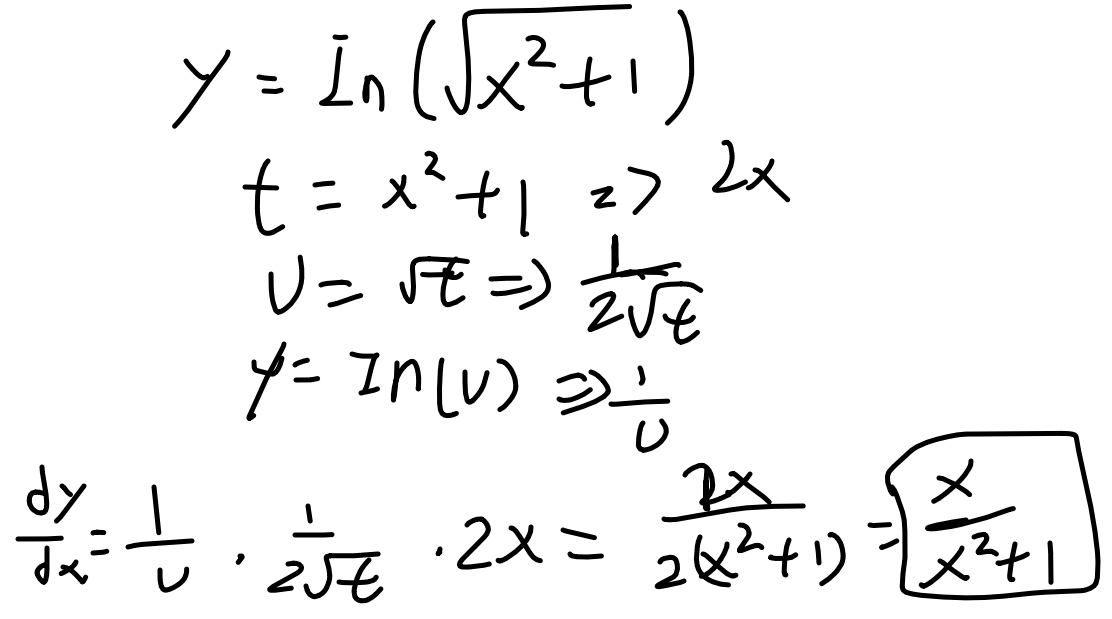 y = ln(√(x²+1))
t = x²+1 => 2x
u = √t => 1/(2√t)
y = ln(u) => 1/u
dy/dx = 1/u · 1/(2√t) · 2x = 2x/(2(x²+1)) = x/(x²+1)